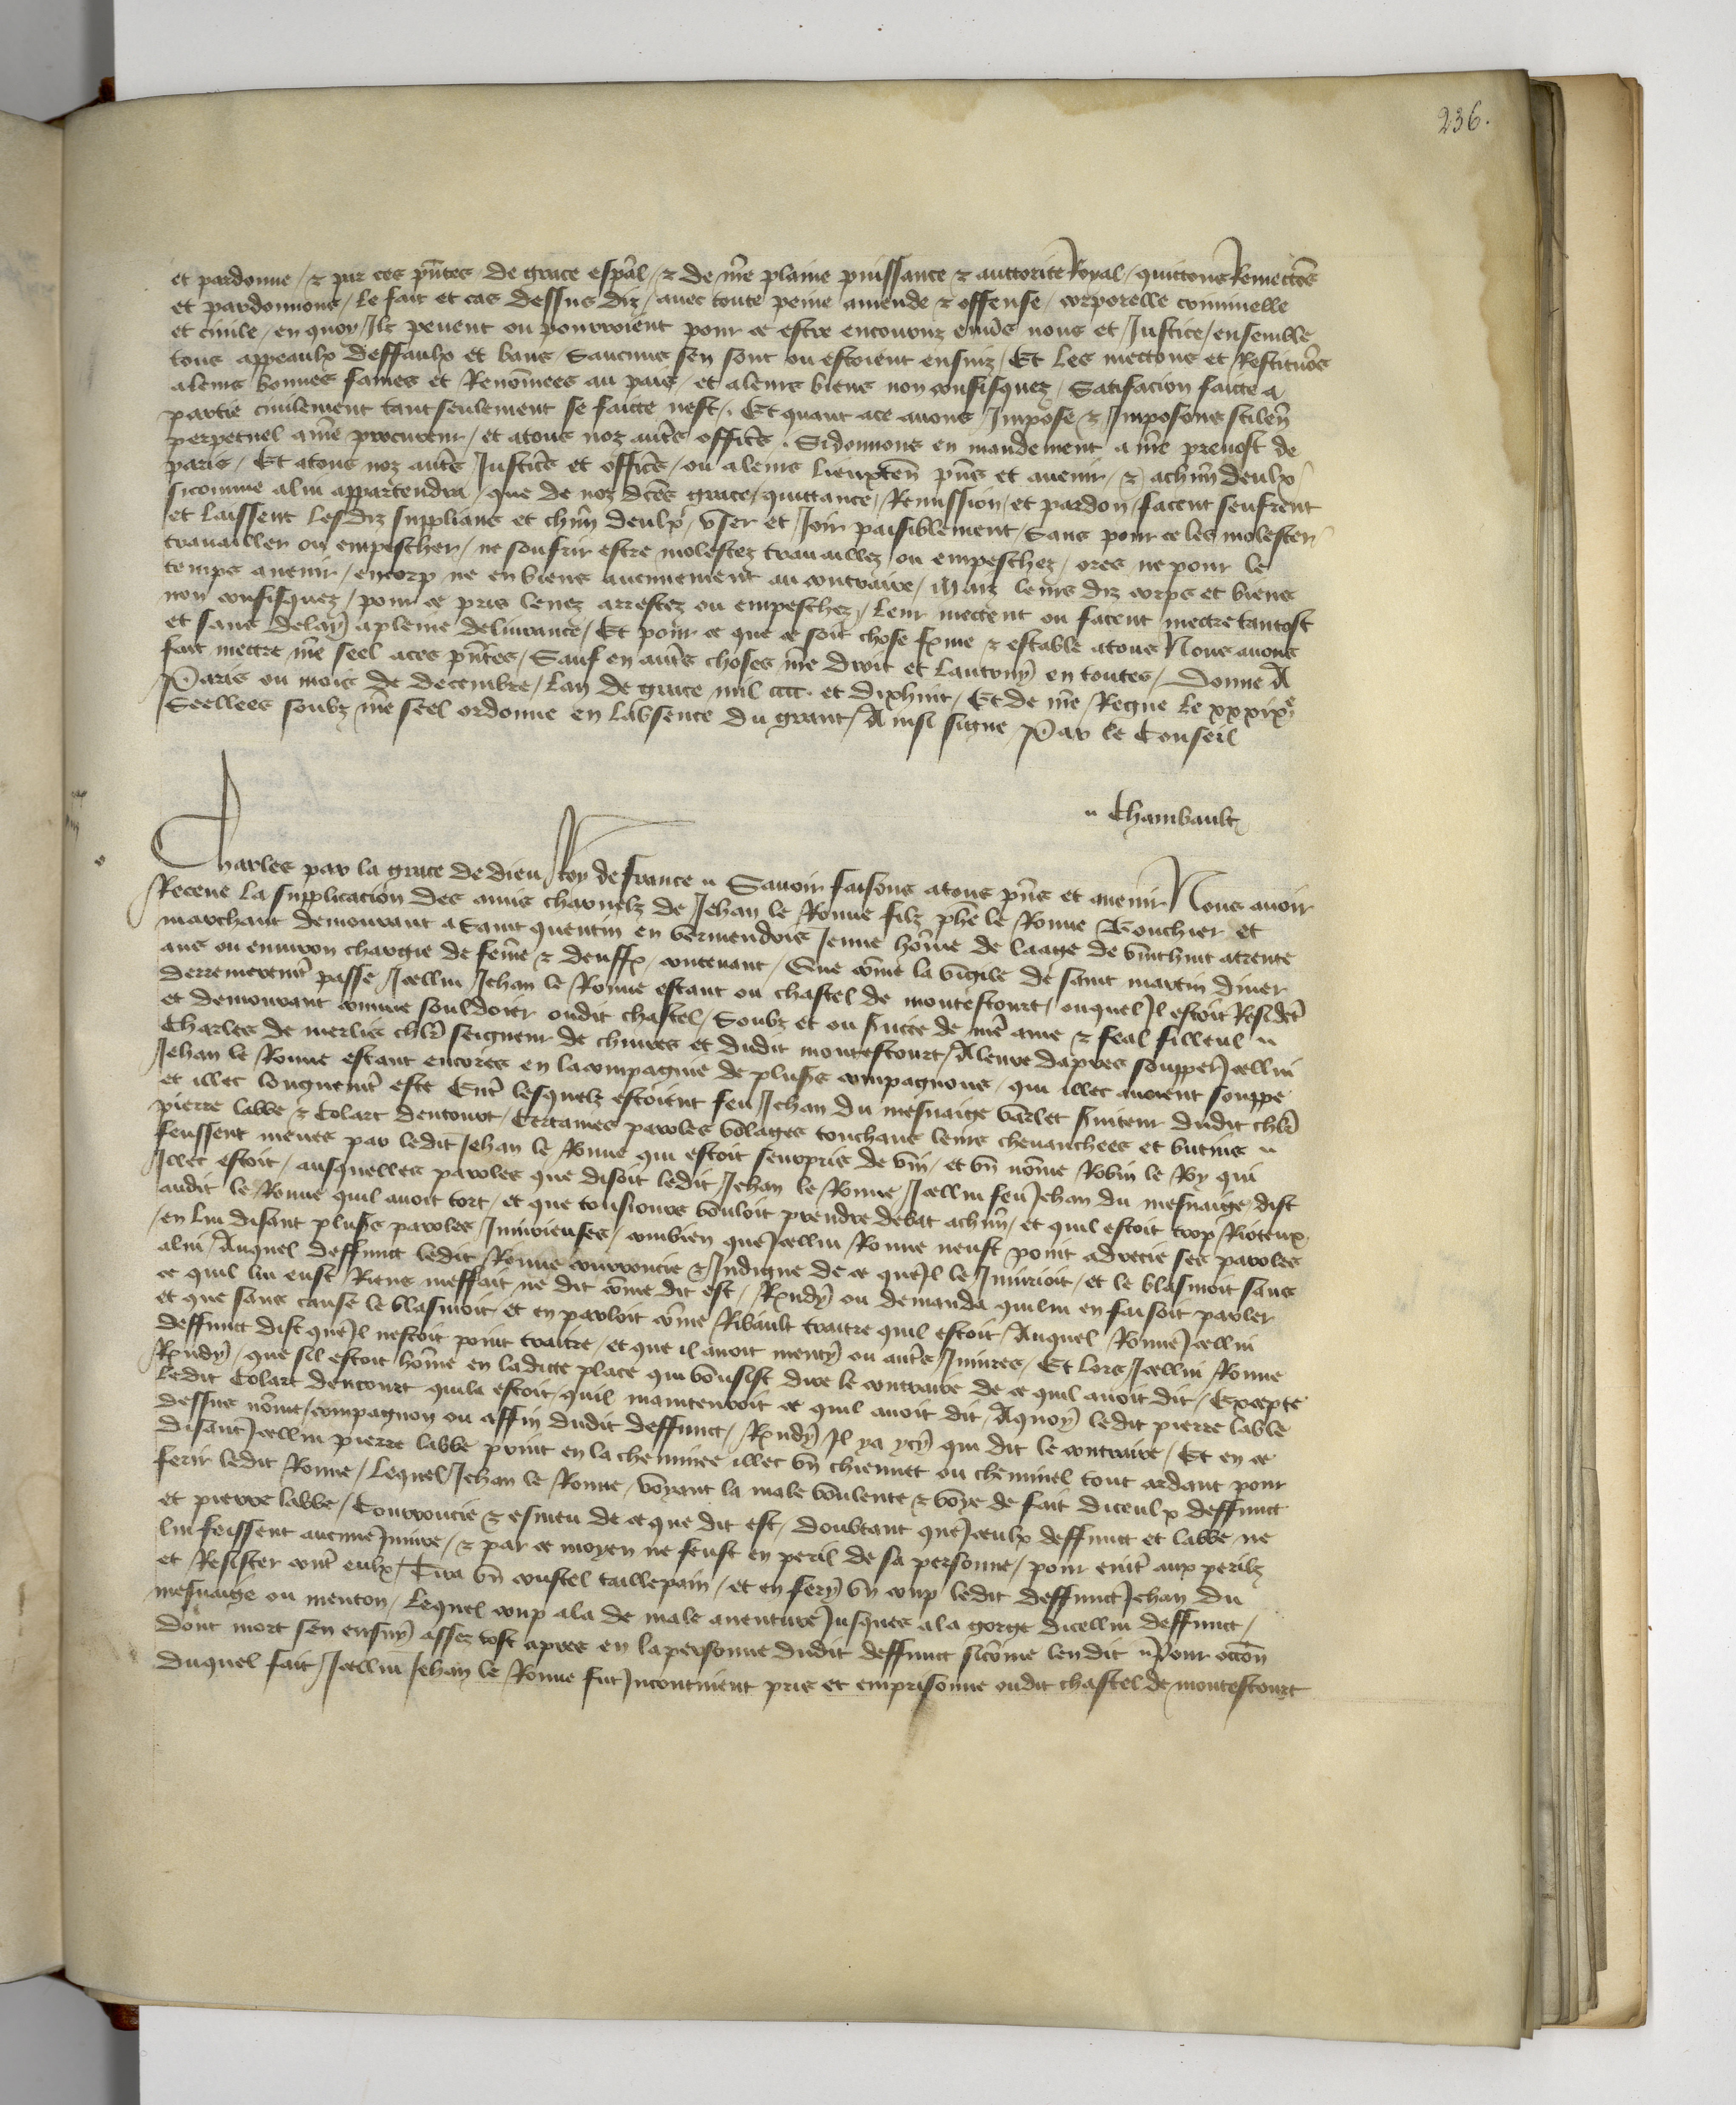 236.
et pardonne / & par ces pñtes de grace esp̃al / & de nr̃e plaine puissance & auctorite Royal / quictons Remectõs
et pardonnons / le fait et cas dessus diz / avec toute peine amende & offense / corporelle criminelle
et civile / en quoy / Ilz pevent ou pourroient pour ce estre encouruz envs̃ nous et Justice / ensemble
tous appeaulx deffaulx et bans / Saucuns sen sont ou estoient ensuiz / Et les mectons et Restituõs
a leurs bonnes fames et Renõmees au pais / et a leurs biens non confisquez / Satifacion faicte a
partie civilement tant seulement se faicte nest /. Et quant a ce avons / Impose & Imposons scilen̄
perpetuel a nr̃e procureur / et a tous noz autr̃es officr̃s . Si donnons en mandement a nr̃e prevost de
paris / Et a tous noz autr̃es Justicr̃s et officr̃s / ou a leurs lieuxten̄ pñs et avenir / & a chũn deulx
sicomme a lui appartendra / que de noz dc̃es grace / quittance / Remission / et pardon / facent seufrent
et laissent lesdiz supplians et chũn deulx / user et Joir paisiblement / Sans pour ce les molester
travailler ou empescher / ne soufrir estre molestez travaillez ou empeschez / ores ne pour le
temps avenir / en corp ne en biens aucunement au contraire / Maiz leurs diz corps et biens
non confisquez / pour ce pris levez arrestez ou empeschez / leur mectent ou facent mectre tantost
et sans delay a pleine delivrance / Et pour ce que ce soit chose f̃me & estable a tous Nous avons
fait mectre nr̃e seel a ces pñtes / Sauf en autr̃es choses nr̃e droit et lautruy en toutes / Donne A
Paris ou mois de decembre / lan de grace mil cccc. et dixhuit / Et de nr̃e Regne le xxxixe
Seellees soubz nr̃e seel ordonne en labsence du grant / Ainsi signe / Par le Conseil
" Chambault
Charles par la grace de dieu Roy de france " Savoir faisons a tous pñs et avenir Nous avoir
Receue la supplication des amis charnelz de Jehan le Ronne filz ph̃e le Ronne Bouchier et
marchant demourant a Saint quentin en vermendois Jeune hõme de laage de vinthuit a trente
ans ou environ chargie de fem̃e & denff̃ / contenant / Que cõme la vigile de saint martin diver
derrenierem̃t passe / Icellui Jehan le Ronne estant ou chastel de montescourt / ouquel Il estoit Resid̃et
et demourant comme souldoier oudit chastel / Soubz et ou s̃vice de nr̃e ame & feal filleul "
Charles de merlis chlr̃ seigneur de chuires et dudit montescourt / A leure dapres souppe Icellui
Jehan le Ronne estant encores en la compagnie de plus̃rs compagnons / qui illec avoient souppe
et illec longuem̃t este Ent̃ lesquelz estoient feu Jehan du mesnaige varlet s̃viteur dudit chlr̃
pierre labbe & Colart dencourt / Certaines paroles volages touchans leurs chevauchees et butins "
feussent meues par ledit Jehan le Ronne qui estoit seurpris de vin / et un nõme Robin le Roy qui
Illec estoit / ausquelles paroles que disoit ledit Jehan le Ronne / Icellui feu Jehan du mesnaige / dist
audit le Ronne quil avoit tort / et que tousiours vouloit prendre debat a chũn / et quil estoit trop Rioteux
en lui disant plus̃rs paroles / Iniurieuses / combien que Icellui Ronne neust point adrecie ses paroles
a lui / Auquel deffunct ledit Ronne courroucie & Indigne de ce que Il le Iniurioit / et le blasmoit sans
ce quil lui eust Riens meffait ne dit cõme dit est / Rx̃ndy ou demanda qui lui en faisoit parler
et que sans cause le blasmoit / et en parloit cõme Ribault traitre quil estoit / Auquel Ronne Icellui
deffunct dist que Il nestoit point traitre / et que il avoit menty ou autr̃es Iniures / Et lors Icellui Ronne
Rx̃ndy / que sil estoit hõme en ladicte place qui voulsist dire le contraire de ce quil avoit dit / Excepte
ledit Colart dencourt qui la estoit / quil maintenroit ce quil avoit dit / A quoy ledit pierre labbe
dessus nõme / compagnon ou affin dudit deffunct / Rx̃ndy Il ya ycy qui dit le contraire / Et en ce
disant Icellui pierre labbe print en la cheminee illec un chiennet ou cheminel tout ardant pour
ferir ledit Ronne / Lequel Jehan le Ronne / voyant la male voulente & voye de fait diceulx deffunct
et pierre labbe / Courroucie & esmeu de ce que dit est / doubtant que Iceulx deffunct et labbe ne
lui feissent aucune Iniure / & par ce moyen ne feust en peril de sa personne / pour evit̃ aux perilz
et Resister cont̃ eulx / Tira un coustel taillepain / et en fery un coup ledit deffunct Jehan du
mesnaige ou menton / Lequel coup ala de male aventure Jusques a la gorge dicellui deffunct /
dont mort sen ensuy assez tost apres en la personne dudit deffunct sicõme len dit " Pour occõn
duquel fait / Icellui Jehan le Ronne fut Incontinent pris et emprisonne oudit chastel de montescourt